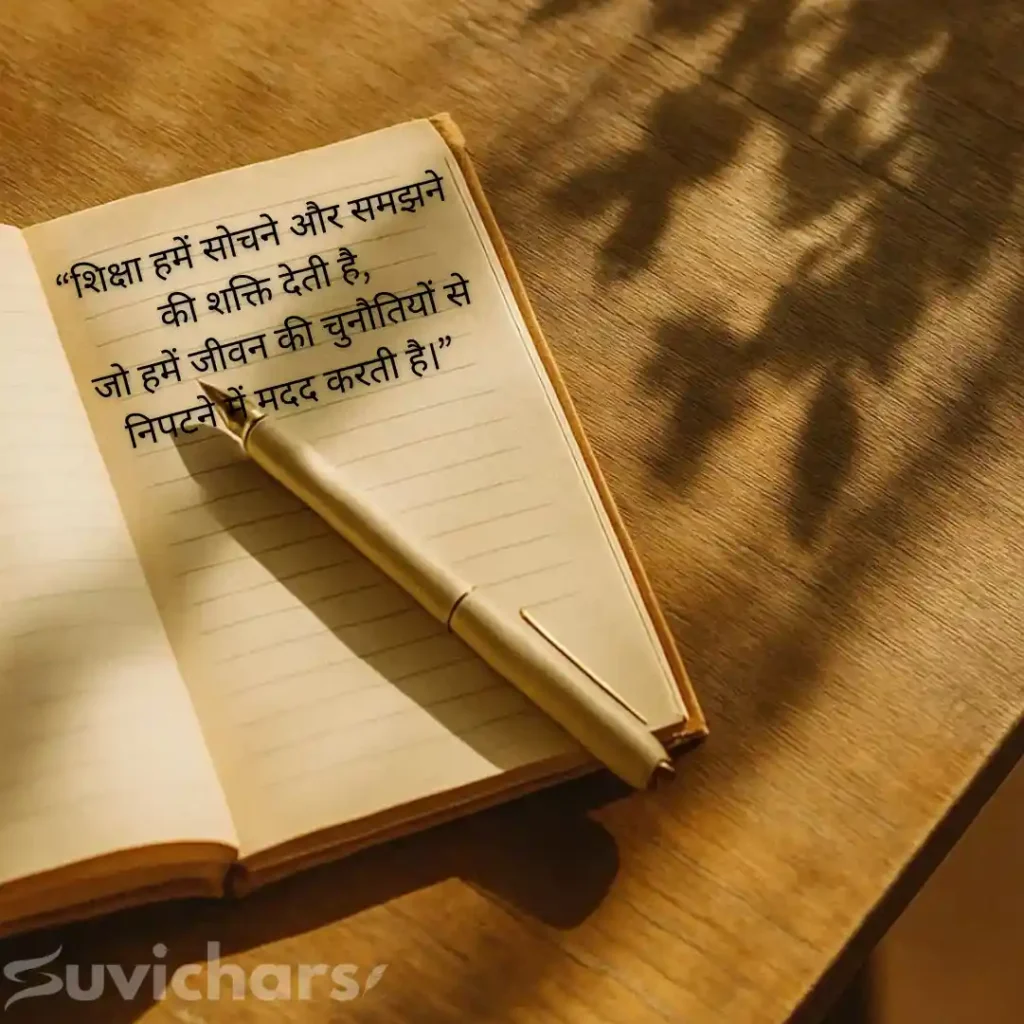 “शिक्षा हमें सोचने और समझने
की शक्ति देती है,
जो हमें जीवन की चुनौतियों से
निपटने में मदद करती है।”
Suvichars